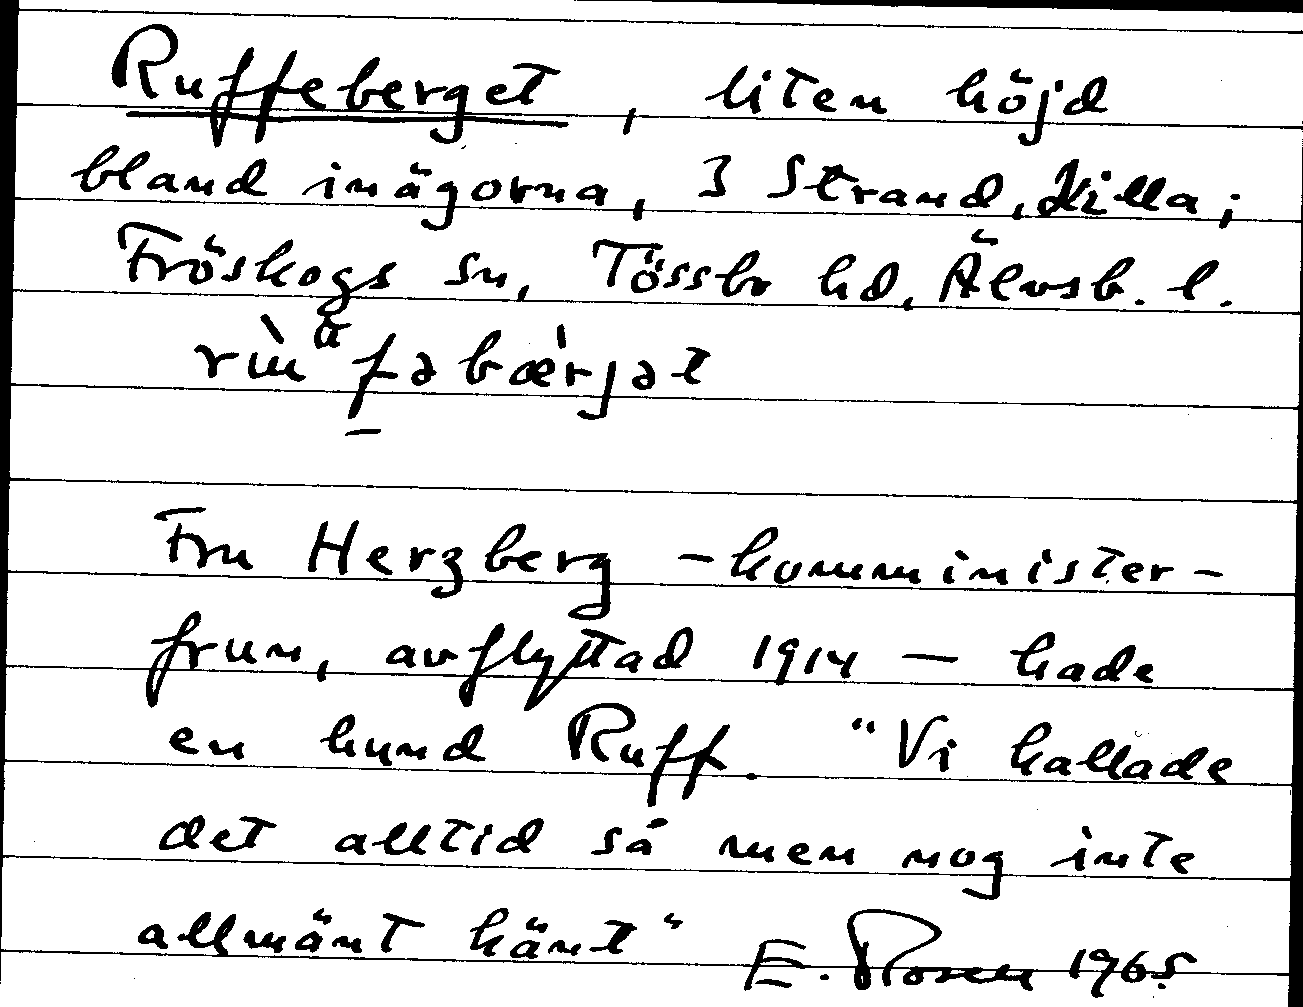 Ruffeberget, liten höjd
bland inägorna, I Strand, Killa;
Fröskogs sn, Tössbo hd, Älvsb. l.
fəbæ̀rjət
Fru Herzberg - komminister-
frun, avflyttad 1914 - hade
en hund Ruff. "Vi kallade
det alltid så men nog inte
allmänt känt" E. Rosen 1965